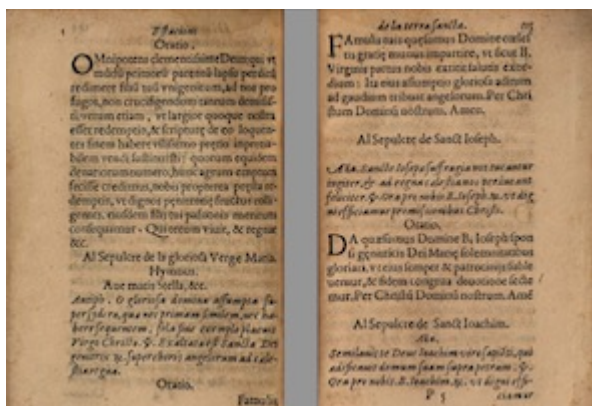 Oratio.
OMnipotens clementissime Deus qui vt
mūdū primorū parentū lapsu perditū
redimere filiū tuū vnigenitum, ad nos pro
fugos, non crucifigendum tantum
verum etiam, vt largior quoque nostra
esset redemptio, & scripturæ de eo loquen-
tes finem habere vilissimo pretio
vendi sustinuisti: quorum equidem
denariorum numero, hunc agrum emptum
fuisse credimus, nobis propterea
vt dignos penitentię fructus colli-
gentes, eiusdem filij tui passionis meritum
consequamur. Qui tecum viuit, & regnat
&c.
Al Sepulcre de la gloriosa Verge Maria.
Hymnus.
Aue maris Stella, &c.
Antiph. O gloriosa domina assumpta su-
per sydera, quæ nec primam similem, nec ha-
bere sequentem, sola sine exemplo placuit
Virgo Christo. ℣. Exaltata est sancta Dei
genitrix ℟. super choros angelorum ad cæle-
stia regna.
Oratio.
Famulis
de la terra sancta.
FAmulis tuis quęsumus Domine cælest
tis gratię munus impartire, vt sicut B.
Virginis partus nobis extitit salutis exor-
dium: Ita eius assumptio gloriosa aditum
ad gaudium tribuat angelorum. Per Chri
stum Dominū nostrum. Amen.
Al Sepulcre de Sanct Ioseph.
Aña. Sancte Ioseph suffragia nos tueantur
iugiter, & ad regna cælestia nos
feliciter. ℣. Ora pro nobis B. Ioseph. ℟. vt dig
ni efficiamur promissionibus Christi.
Oratio.
DA quæsumus Domine B. Ioseph spon
si genitricis Dei Marię solemnitatibus
gloriari, vt eius semper & patrocinijs suble
uemur, & fidem congrua deuotione secte
mur. Per Christū Dominū nostrum. Amē
Al Sepulcre de Sanct Ioachim.
Aña.
Similauit te Deus Ioachim viro sapiēti, qui
ædificauit domum suam supra petram. ℣.
Ora pro nobis. B. Ioachim. ℟. vt digni effi-
P 5 ciamur